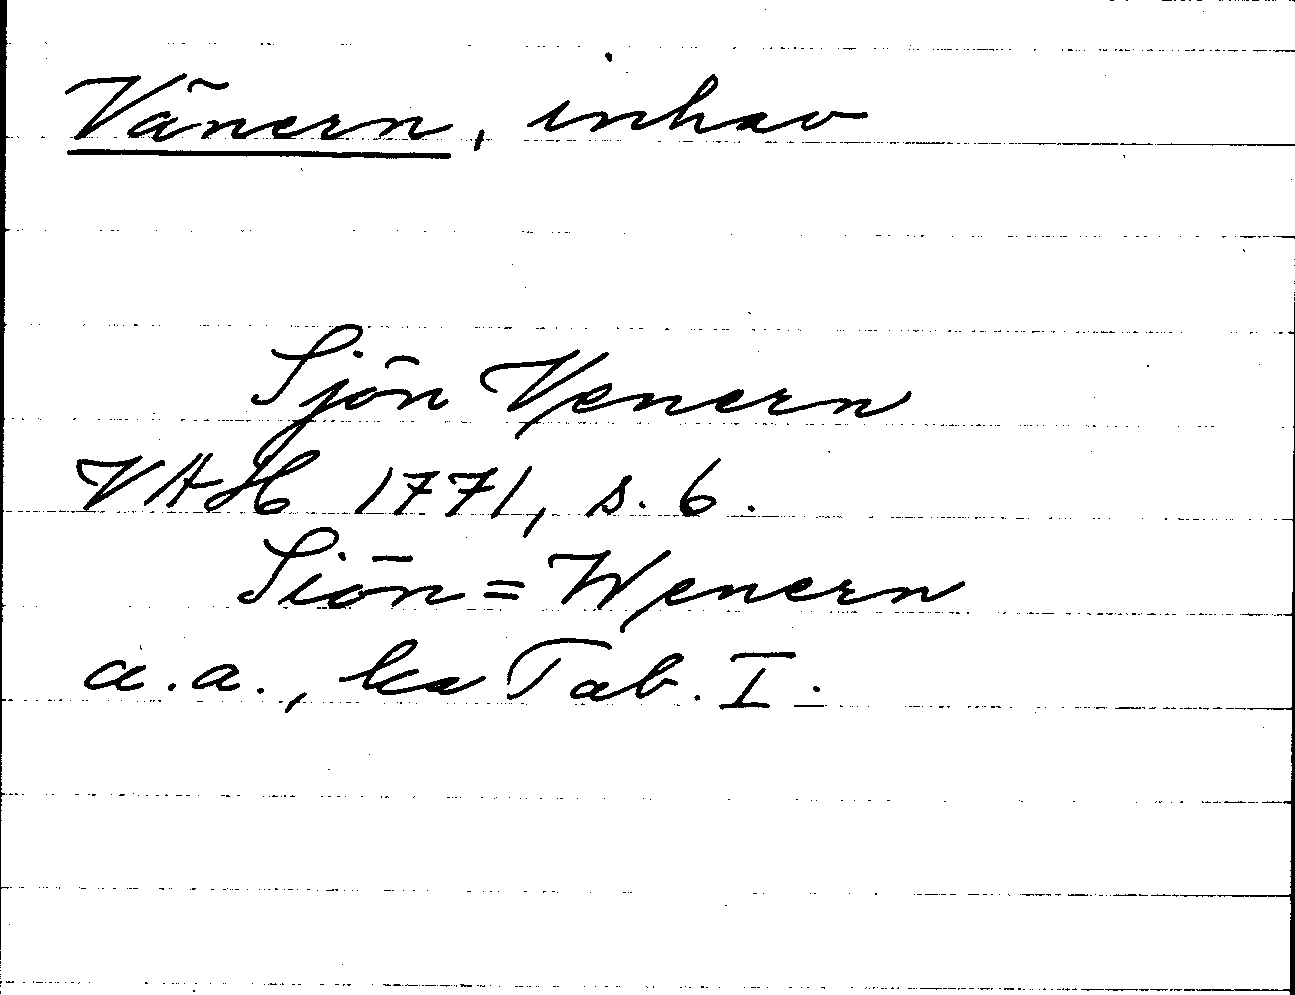 Vänern, inhav
Sjön Venern
VAH 1771, s. 6.
Siön=Wenern
a.a., ka Tab. I.